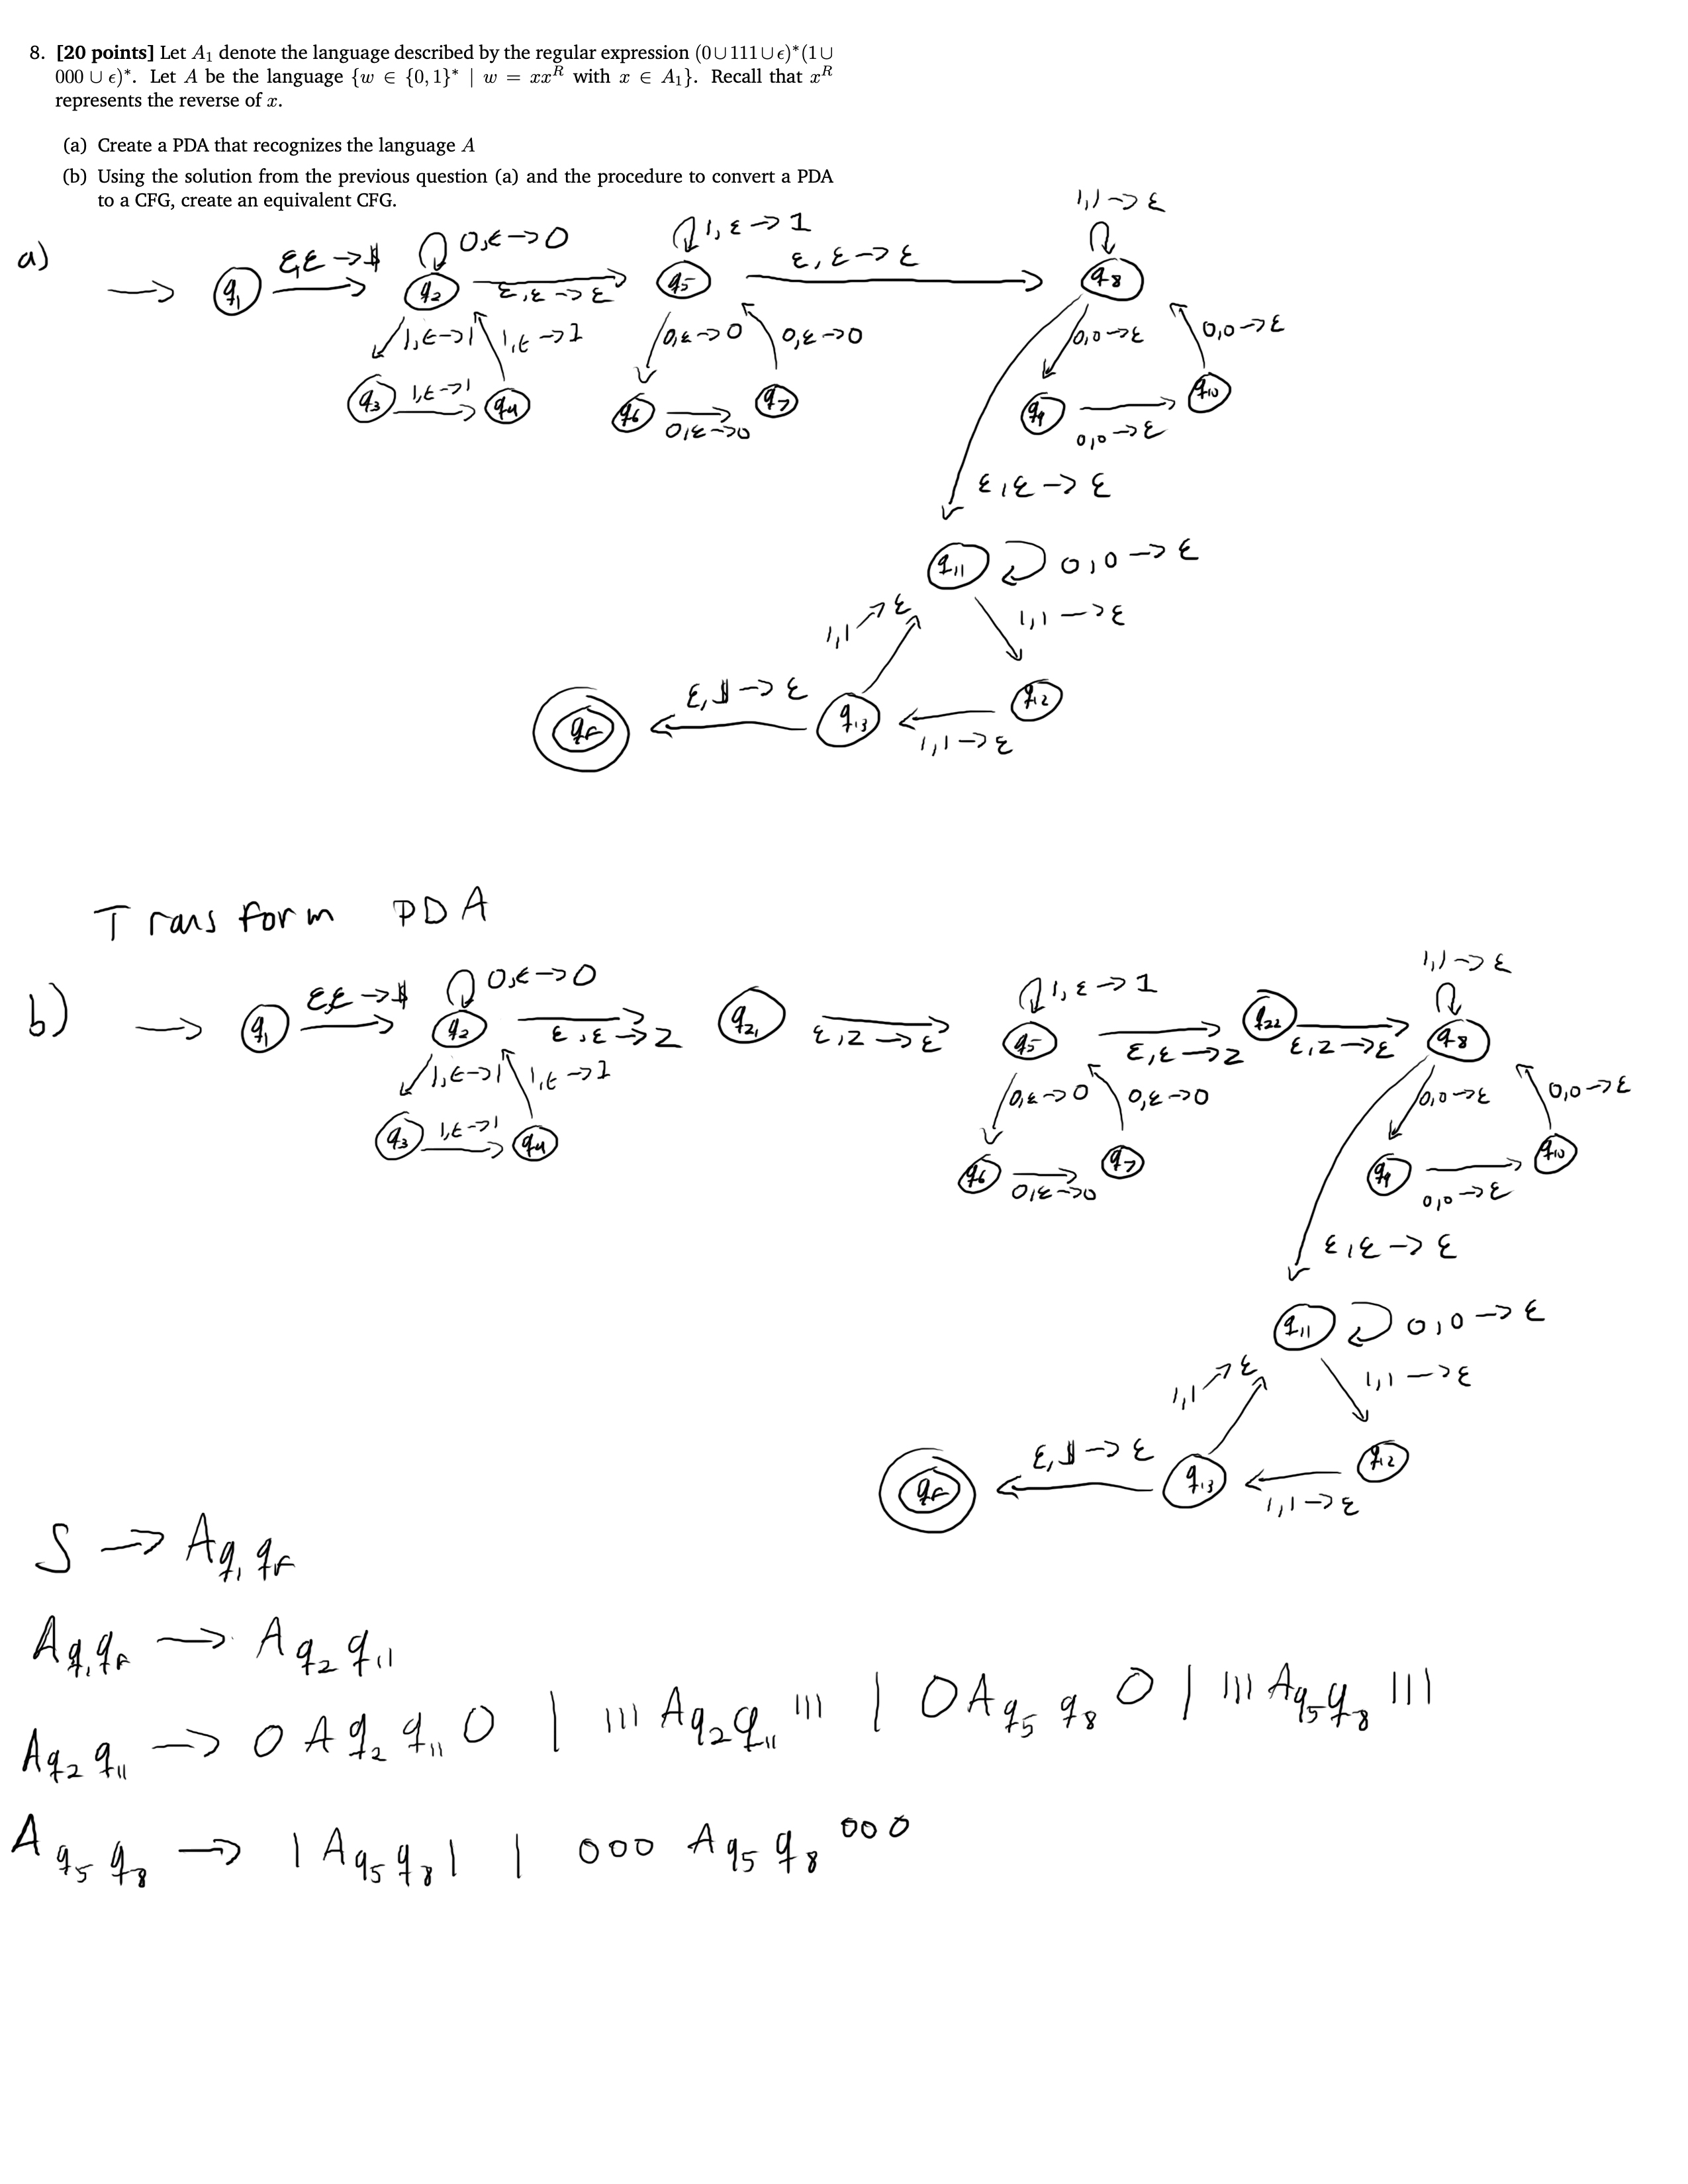 8. [20 points] Let A₁ denote the language described by the regular expression (0∪111∪ϵ)*(1∪
000 ∪ ϵ)*. Let A be the language {w ∈ {0,1}* | w = xxᴿ with x ∈ A₁}. Recall that xᴿ
represents the reverse of x.
(a) Create a PDA that recognizes the language A
(b) Using the solution from the previous question (a) and the procedure to convert a PDA
to a CFG, create an equivalent CFG.
a)
q₁ ε,ε → $ q₂ 0,ε → 0
ε,ε → ε q₅ 1,ε → 1
ε,ε → ε q₈ 1,1 → ε
1,ε → 1 1,ε → 1 0,ε → 0 0,ε → 0 0,0 → ε 0,0 → ε
q₃ 1,ε → 1 q₄ q₆ 0,ε → 0 q₇ q₉ 0,0 → ε q₁₀
ε,ε → ε
q₁₁ 0,0 → ε
1,1 → ε 1,1 → ε
qF ε,$ → ε q₁₃ 1,1 → ε q₁₂
Transform PDA
b)
q₁ ε,ε → $ q₂ 0,ε → 0
ε,ε → Z q₂₁ ε,Z → ε q₅ 1,ε → 1
ε,ε → Z q₂₂ ε,Z → ε q₈ 1,1 → ε
1,ε → 1 1,ε → 1 0,ε → 0 0,ε → 0 0,0 → ε 0,0 → ε
q₃ 1,ε → 1 q₄ q₆ 0,ε → 0 q₇ q₉ 0,0 → ε q₁₀
ε,ε → ε
q₁₁ 0,0 → ε
1,1 → ε 1,1 → ε
qF ε,$ → ε q₁₃ 1,1 → ε q₁₂
S → A q₁ qF
A q₁ qF → A q₂ q₁₁
A q₂ q₁₁ → 0 A q₂ q₁₁ 0 | 111 A q₂ q₁₁ 111 | 0 A q₅ q₈ 0 | 111 A q₅ q₈ 111
A q₅ q₈ → 1 A q₅ q₈ 1 | 000 A q₅ q₈ 000